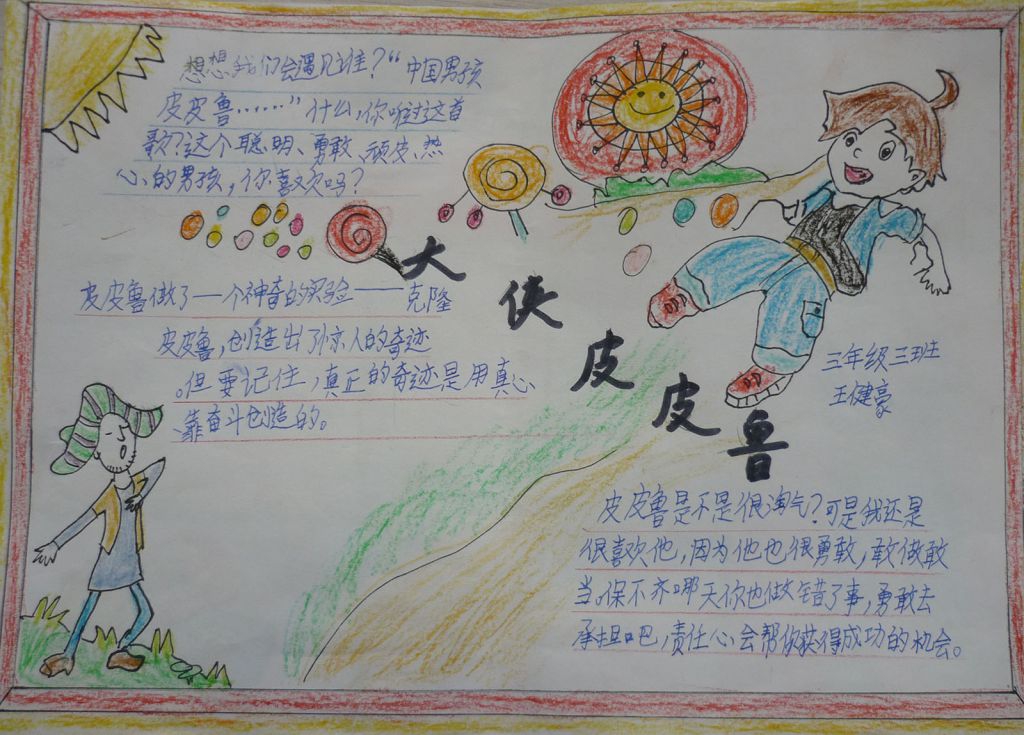 想想我们会遇见谁？“中国男孩
皮皮鲁……”什么，你听过这首
歌？这个聪明、勇敢、顽皮、热
心的男孩，你喜欢吗？
大侠皮皮鲁
皮皮鲁做了一个神奇的实验——克隆
皮皮鲁，创造出了惊人的奇迹
。但要记住，真正的奇迹是用真心
、靠奋斗创造的。
三年级三班
王健豪
皮皮鲁是不是很淘气？可是我还是
很喜欢他，因为他也很勇敢，敢做敢
当。保不齐哪天你也做错了事，勇敢去
承担吧，责任心会帮你获得成功的机会。